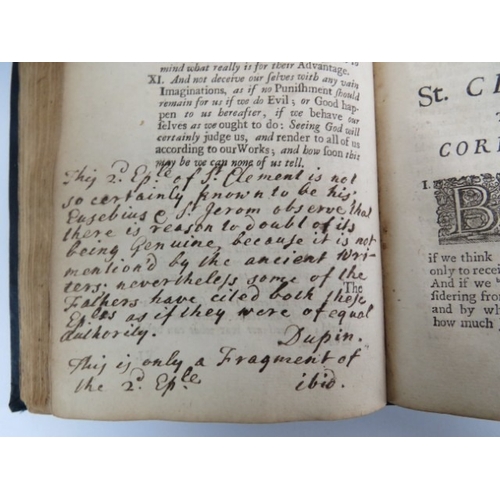 mind what really is for their Advantage.
XI. And not deceive our selves with any vain
Imaginations, as if no Puniſhment ſhould
remain for us if we do Evil; or Good hap-
pen to us hereafter, if we behave our
ſelves as we ought to do: Seeing God will
certainly judge us, and render to all of us
according to our Works; and how ſoon this
may be we can none of us tell.
This 2d. Eple of St. Clement is not
so certainly known to be his
Eusebius & St. Jerom observe that
there is reason to doubt of its
being Genuine, because it is not
mention'd by the ancient Wri-
ters: nevertheless some of the
The
Fathers have cited both these
Eples as if they were of equal
Authority.
Dupin.
This is only a Fragment of
the 2d. Eple ibid.
St. C
COR
I.
B
if we think
only to rece
And if we "
ſidering from
and by wh
how much